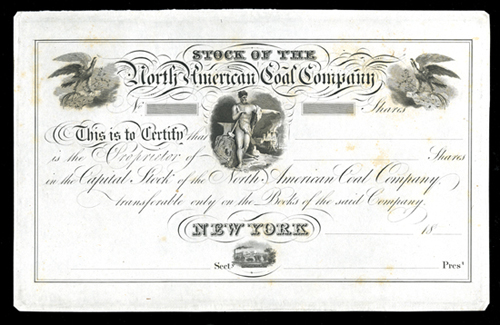 STOCK OF THE
North American Coal Company
N Shares
This is to Certify that
is the Proprietor of Shares
in the Capital Stock of the North American Coal Company,
transferable only on the Books of the said Company.
NEW YORK 18
Sect. Prest